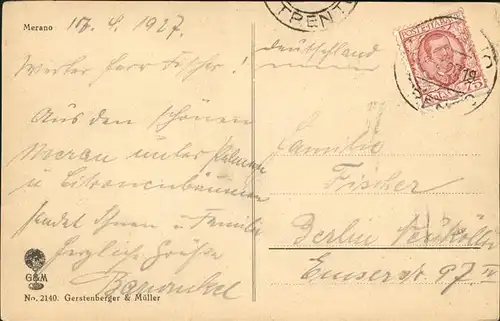 Merano 10.4.1927
Werter Herr Fischer!
Aus dem schönen
Meran unter Palmen
u Citronenbäumen
sendet Ihnen u Familie
herzliche Grüße
G&M
No. 2140. Gerstenberger & Müller
TRENT
Deutschland
POSTE ITALIANE
75
Familie
Fischer
Berlin Neukölln
Emserstr 97 IV